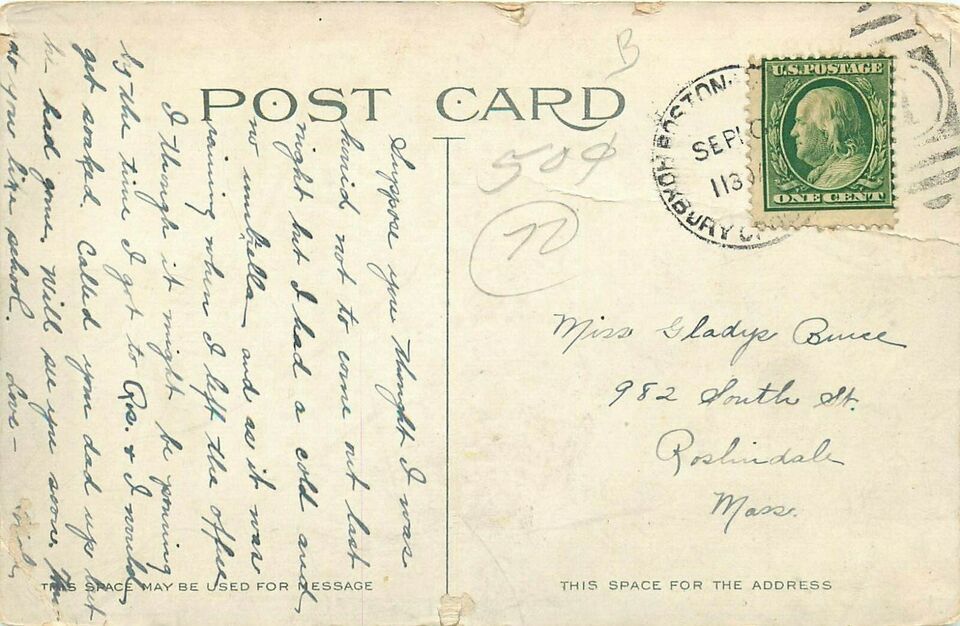 POST CARD
B
50¢
U.S. POSTAGE
ONE CENT
BOSTON
SEP
1130
ROXBURY
Suppose you thought I was
horrid not to come out last
night but I had a cold and
no umbrella and as it was
raining when I left the office
I though it might be pouring
by the time I got to Ros. & I would
get soaked. Called your dad up but
he had gone. Will see you soon.
do you like school. Love –
Miss Gladys Bruce
982 South St.
Roslindale
Mass.
THIS SPACE MAY BE USED FOR MESSAGE
THIS SPACE FOR THE ADDRESS